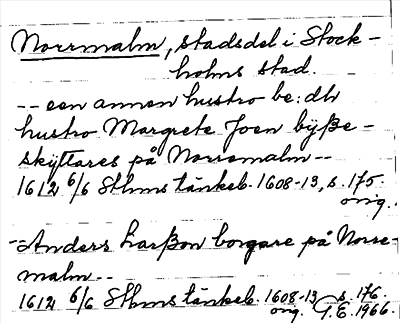 Norrmalm, stadsdel i Stock-
holms stad.
-- een annen hustro be:dh
hustro Margrete Joen byße-
skyttares på Norremalm --
1612 6/6 Sthms tänkeb. 1608-13, s. 175.
orig.
- Anders Larßon borgare på Norre-
malm --
1612 6/6 Sthms tänkeb. 1608-13 s. 176
orig. G.E. 1966.